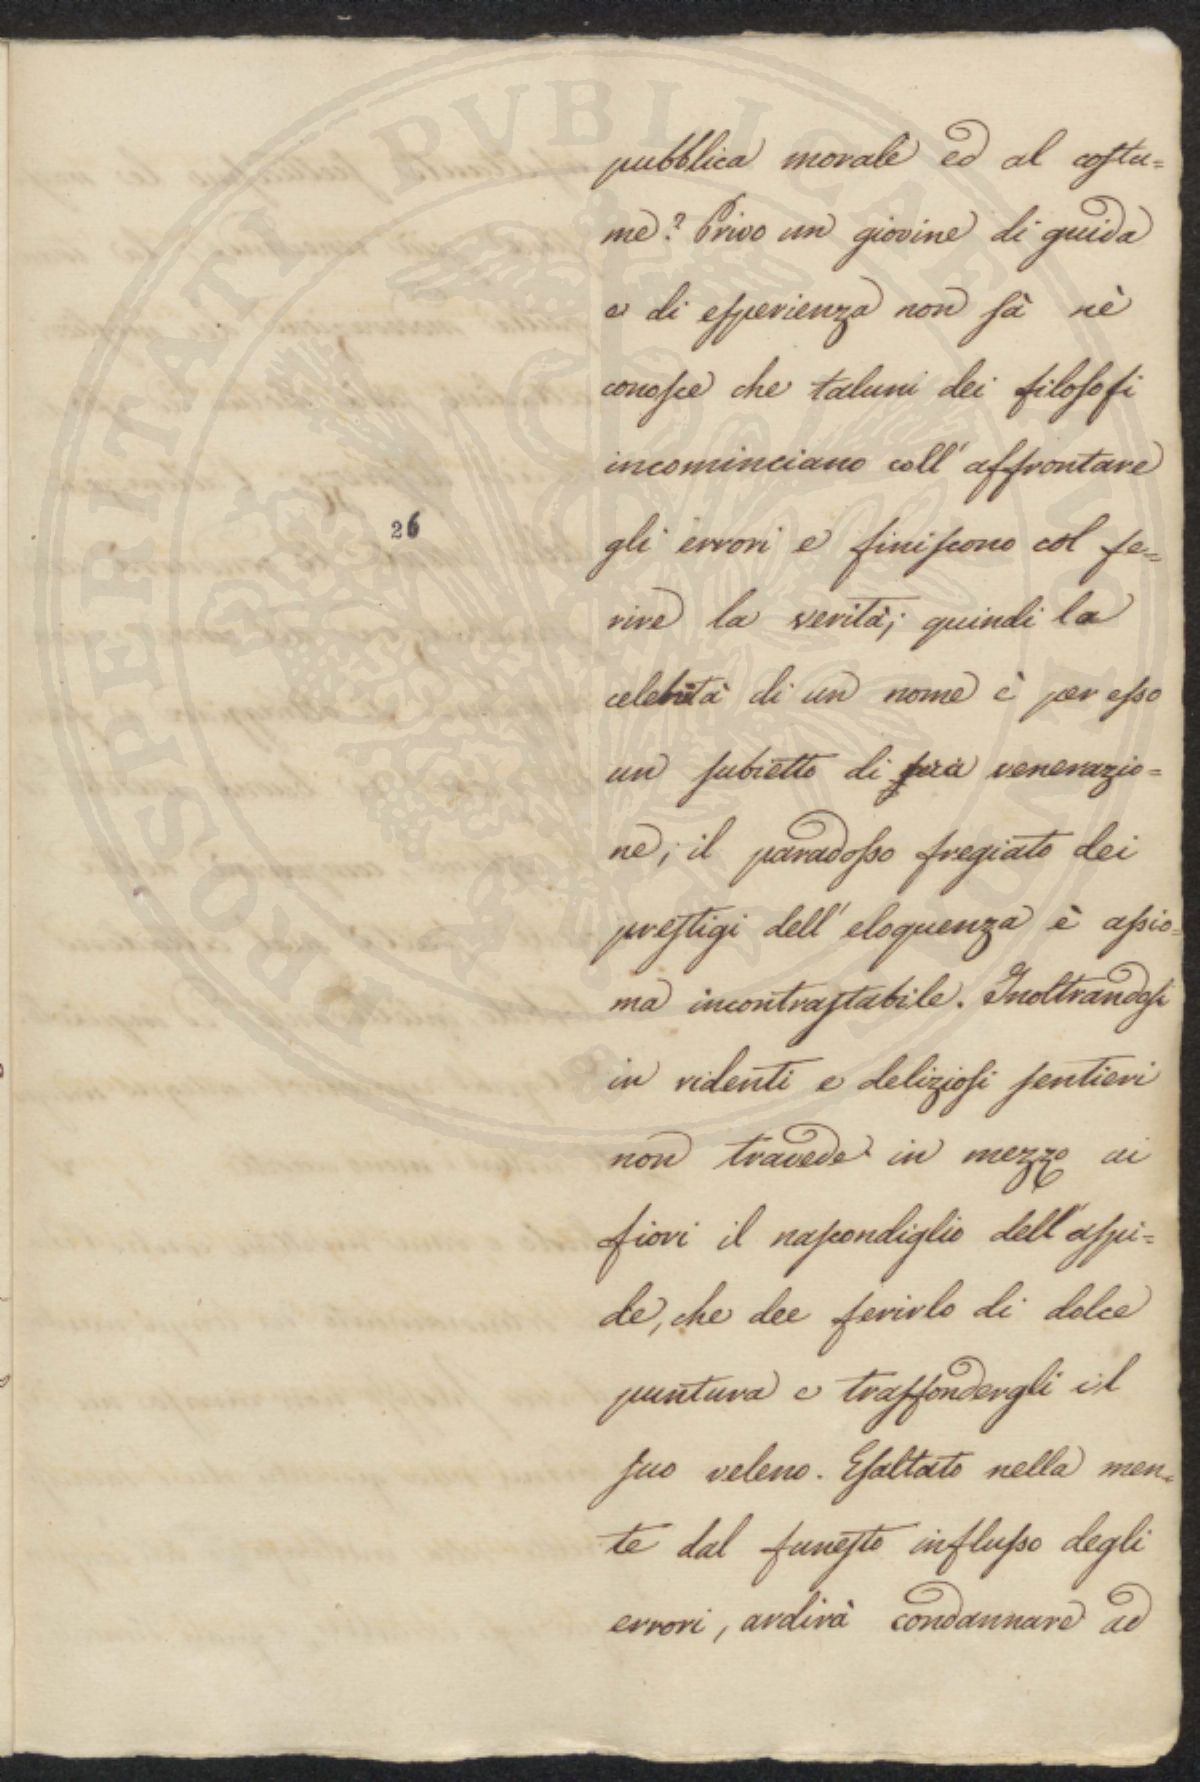 PROSPERITATI PVBLICAE
pubblica morale ed al costu=
me? Privo un giovine di guida
e di esperienza non sà nè
conosce che taluni dei filosofi
incominciano coll' affrontare
26
gli errori e finiscono col fe=
rire la verità; quindi la
celebrità di un nome è per esso
un subietto di venerazio=
ne; il paradosso fregiato dei
prestigi dell' eloquenza è assio=
ma incontrastabile. Inoltrandosi
in ridenti e deliziosi sentieri
non travede in mezzo ai
fiori il nascondiglio dell' aspi=
de, che dee ferirlo di dolce
puntura e trasfondergli il
suo veleno. Esaltato nella men=
te dal funesto influsso degli
errori, ardirà condannare ad